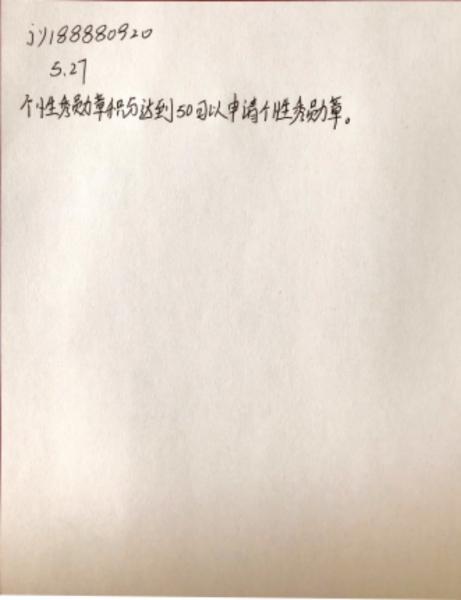 jy188880920
5.27
个性秀勋章积分达到50可以申请个性秀勋章。